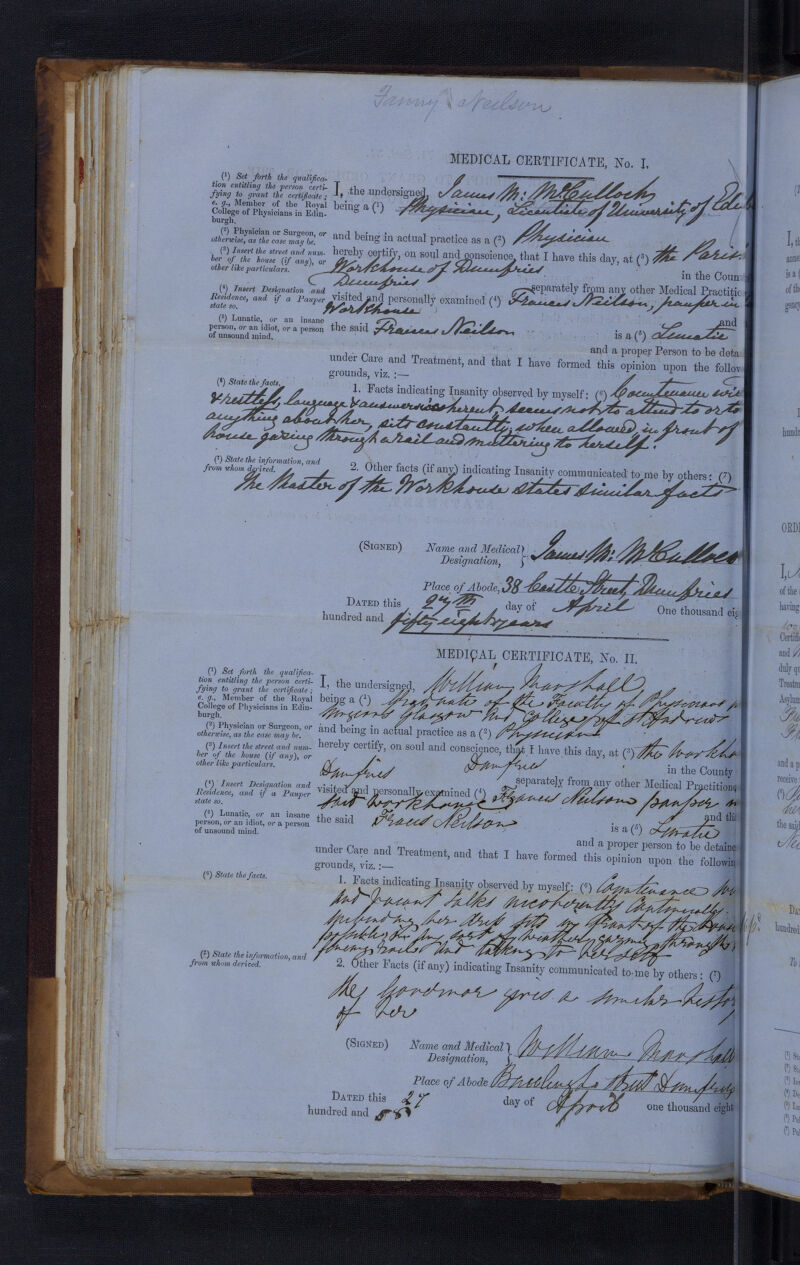 Fanny Neilson
MEDICAL CERTIFICATE, No. I.
(¹) Set forth the qualifica-
tion entitling the person certi-
fying to grant the certificate;
e. g., Member of the Royal
College of Physicians in Edin-
burgh.
I, the undersigned, James M: McCulloch
being a (¹) Physician, Licentiate of University of
(²) Physician or Surgeon, or
otherwise, as the case may be.
and being in actual practice as a (²) Physician
(³) Insert the street and num-
ber of the house (if any), or
other like particulars.
hereby certify, on soul and conscience, that I have this day, at (³) the
Workhouse of Dumfries in the
Dumfries separately from any other Medical
(⁴) Insert Designation and
Residence, and if a Pauper
state so.
visited and personally examined (⁴) Frances Neilson, pauper in
Workhouse and
(⁵) Lunatic, or an insane
person, or an idiot, or a person
of unsound mind.
the said Frances Neilson is a (⁵) Lunatic
and a proper Person to be
under Care and Treatment, and that I have formed this opinion upon the
grounds, viz. :—
(⁶) State the facts.
1. Facts indicating Insanity observed by myself: (⁶) Countenance
& restless, language & answers incoherent, seems not to attend to or to
anything about her, sits constantly, when allowed, in front of
house gazing through a rail and muttering to herself.
(⁷) State the information, and
from whom derived.
2. Other facts (if any) indicating Insanity communicated to me by others: (⁷)
The Master of the Workhouse states similar facts
(SIGNED) Name and Medical
Designation, James M: McCulloch
Place of Abode, 38 Castle Street, Dumfries
DATED this 27th day of April One thousand
hundred and fifty eight years
MEDICAL CERTIFICATE, No. II.
(¹) Set forth the qualifica-
tion entitling the person certi-
fying to grant the certificate;
e. g., Member of the Royal
College of Physicians in Edin-
burgh.
I, the undersigned, William Marshall
being a (¹) Graduate of the Faculty of Physicians
Surgeons Glasgow and College of St Andrews
(²) Physician or Surgeon, or
otherwise, as the case may be.
and being in actual practice as a (²) Physician
(³) Insert the street and num-
ber of the house (if any), or
other like particulars.
hereby certify, on soul and conscience, that I have this day, at (³) the
Dumfries Dumfries in the County
separately from any other Medical
(⁴) Insert Designation and
Residence, and if a Pauper
state so.
visited and personally examined (⁴) Frances Neilson pauper
said workhouse and
(⁵) Lunatic, or an insane
person, or an idiot, or a person
of unsound mind.
the said Frances Neilson is a (⁵) Lunatic
and a proper person to be
under Care and Treatment, and that I have formed this opinion upon the
grounds, viz. :—
(⁶) State the facts.
1. Facts indicating Insanity observed by myself: (⁶) Countenance
and vacant talks incoherently Continually
her dress sits in front of the house
gazing through
railes and talking to herself
(⁷) State the information, and
from whom derived.
2. Other Facts (if any) indicating Insanity communicated to me by others: (⁷)
The Governor gives a similar
of her
(SIGNED) Name and Medical
Designation, William Marshall
Place of Abode Buccleugh Street Dumfries
DATED this 27 day of April one thousand
hundred and 58